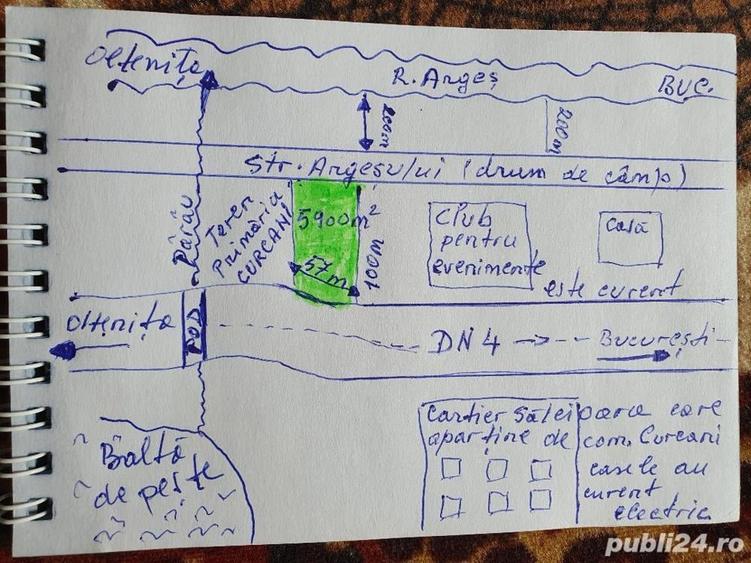 Oltenița
R. Argeș
BUC.
200m
200m
Str. Argeșului (drum de câmp)
Pârâu
Teren
Primăria
CURCANI
5900m²
57m
100m
Club
pentru
evenimente
Casă
este curent
Oltenița
POD
DN4
București
Baltă
de pește
Cartier Sălcioara care
aparține de com. Curcani
casele au
curent
electric
publi24.ro